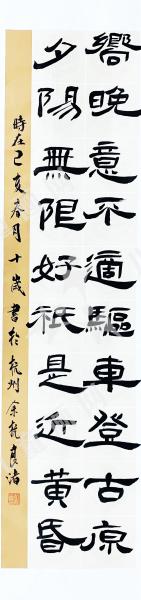 嚮晚意不適驅車登古原
夕陽無限好祇是近黃昏
時在己亥春月十歲書於杭州余杭良渚